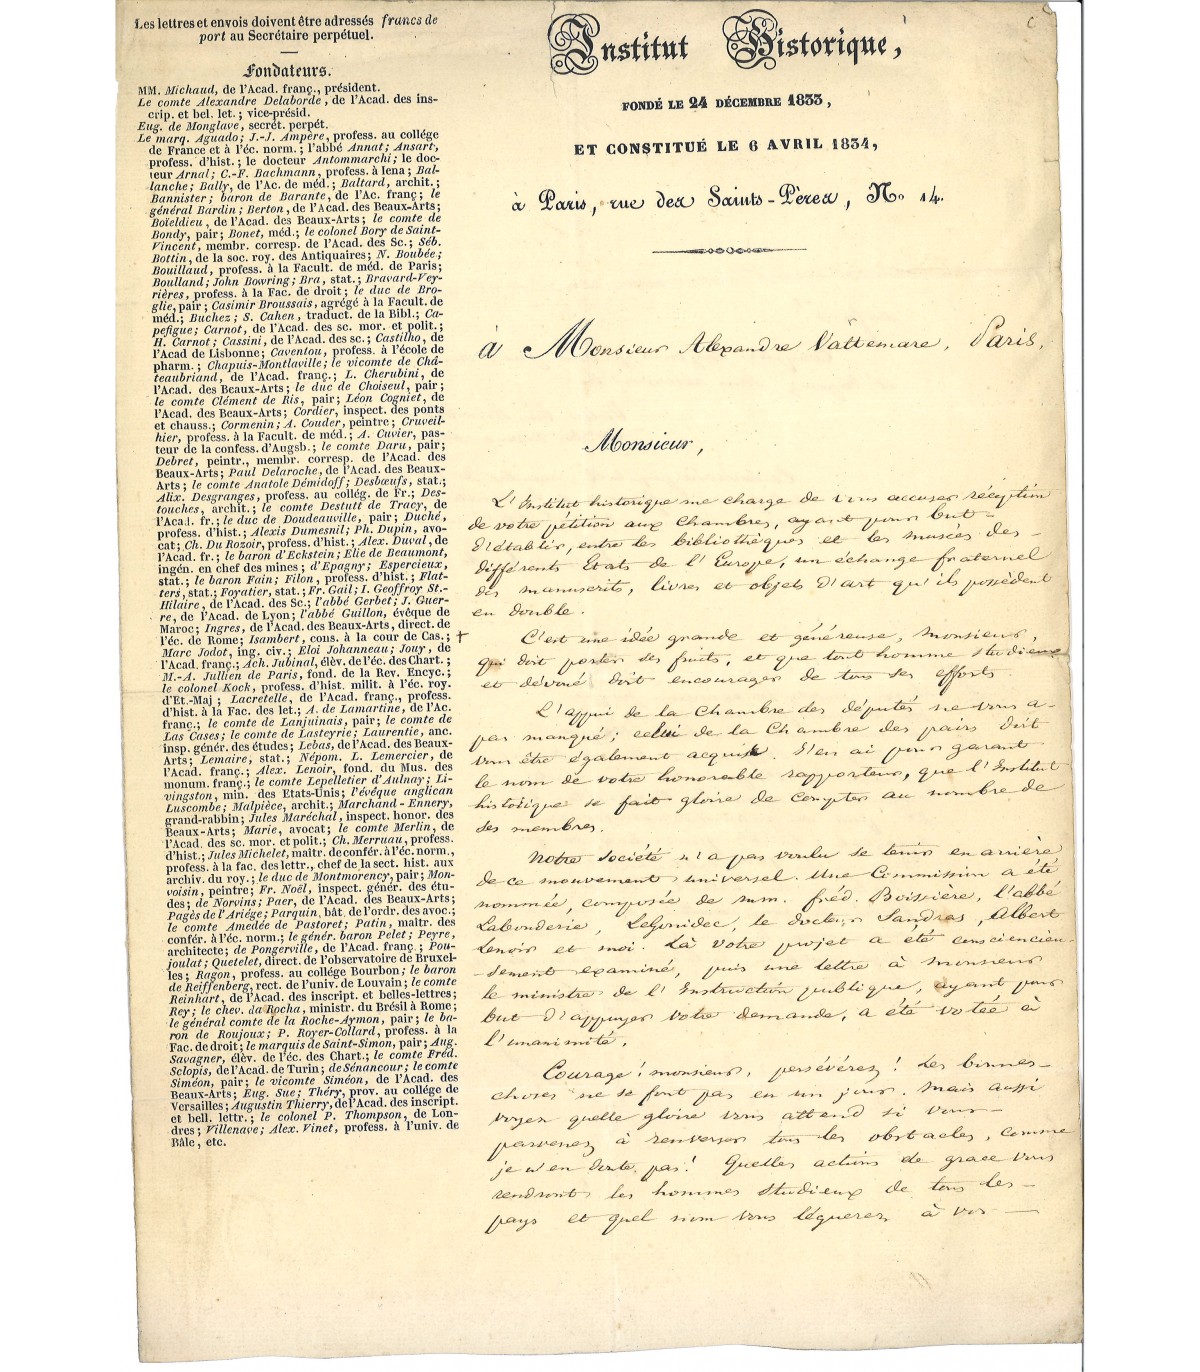 Les lettres et envois doivent être adressés francs de
port au Secrétaire perpétuel.
Fondateurs.
MM. Michaud, de l'Acad. franç., président.
Le comte Alexandre Delaborde, de l'Acad. des ins-
crip. et bel. let.; vice-présid.
Eug. de Monglave, secrét. perpét.
Le marq. Aguado; J.-J. Ampère, profess. au collége
de France et à l'éc. norm.; l'abbé Annat; Ansart,
profess. d'hist.; le docteur Antommarchi; le doc-
teur Arnal; C.-F. Bachmann, profess. à Iena; Bal-
lanche; Bally, de l'Ac. de méd.; Baltard, archit.;
Bannister; baron de Barante, de l'Ac. franç; le
général Bardin; Berton, de l'Acad. des Beaux-Arts;
Boïeldieu, de l'Acad. des Beaux-Arts; le comte de
Bondy, pair; Bonet, méd.; le colonel Bory de Saint-
Vincent, membr. corresp. de l'Acad. des Sc.; Séb.
Bottin, de la soc. roy. des Antiquaires; N. Boubée;
Bouillaud, profess. à la Facult. de méd. de Paris;
Boulland; John Bowring; Bra, stat.; Bravard-Vey-
rières, profess. à la Fac. de droit; le duc de Bro-
glie, pair; Casimir Broussais, agrégé à la Facult. de
méd.; Buchez; S. Cahen, traduct. de la Bibl.; Ca-
pefigue; Carnot, de l'Acad. des sc. mor. et polit.;
H. Carnot; Cassini, de l'Acad. des sc.; Castilho, de
l'Acad de Lisbonne; Caventou, profess. à l'école de
pharm.; Chapuis-Montlaville; le vicomte de Châ-
teaubriand, de l'Acad. franç.; L. Cherubini, de
l'Acad. des Beaux-Arts; le duc de Choiseul, pair;
le comte Clément de Ris, pair; Léon Cogniet, de
l'Acad. des Beaux-Arts; Cordier, inspect. des ponts
et chauss.; Cormenin; A. Couder, peintre; Cruveil-
hier, profess. à la Facult. de méd.; A. Cuvier, pas-
teur de la confess. d'Augsb.; le comte Daru, pair;
Debret, peintr., membr. corresp. de l'Acad. des
Beaux-Arts; Paul Delaroche, de l'Acad. des Beaux-
Arts; le comte Anatole Démidoff; Desbœufs, stat.;
Alix. Desgranges, profess. au collég. de Fr.; Des-
touches, archit.; le comte Destutt de Tracy, de
l'Acad. fr.; le duc de Doudeauville, pair; Duché,
profess. d'hist.; Alexis Dumesnil; Ph. Dupin, avo-
cat; Ch. Du Rozoir, profess. d'hist.; Alex. Duval, de
l'Acad. fr.; le baron d'Eckstein; Elie de Beaumont,
ingén. en chef des mines; d'Epagny; Espercieux,
stat.; le baron Fain; Filon, profess. d'hist.; Flat-
ters, stat.; Foyatier, stat.; Fr. Gail; I. Geoffroy St.-
Hilaire, de l'Acad. des Sc.; l'abbé Gerbet; J. Guer-
re, de l'Acad. de Lyon; l'abbé Guillon, évêque de
Maroc; Ingres, de l'Acad. des Beaux-Arts, direct. de
l'éc. de Rome; Isambert, cons. à la cour de Cas.;
Marc Jodot, ing. civ.; Eloi Johanneau; Jouy, de
l'Acad. franç.; Ach. Jubinal, élèv. de l'éc. des Chart.;
M.-A. Jullien de Paris, fond. de la Rev. Encyc.;
le colonel Kock, profess. d'hist. milit. à l'éc. roy.
d'Et.-Maj; Lacretelle, de l'Acad. franç., profess.
d'hist. à la Fac. des let.; A. de Lamartine, de l'Ac.
franç.; le comte de Lanjuinais, pair; le comte de
Las Cases; le comte de Lasteyrie; Laurentie, anc.
insp. génér. des études; Lebas, de l'Acad. des Beaux-
Arts; Lemaire, stat.; Népom. L. Lemercier, de
l'Acad. franç.; Alex. Lenoir, fond. du Mus. des
monum. franç.; le comte Lepelletier d'Aulnay; Li-
vingston, min. des Etats-Unis; l'évêque anglican
Luscombe; Malpièce, archit.; Marchand-Ennery,
grand-rabbin; Jules Maréchal, inspect. honor. des
Beaux-Arts; Marie, avocat; le comte Merlin, de
l'Acad. des sc. mor. et polit.; Ch. Merruau, profess.
d'hist.; Jules Michelet, maîtr. de confér. à l'éc. norm.,
profess. à la fac. des lettr., chef de la sect. hist. aux
archiv. du roy.; le duc de Montmorency, pair; Mon-
voisin, peintre; Fr. Noël, inspect. génér. des étu-
des; de Norvins; Paer, de l'Acad. des Beaux-Arts;
Pagès de l'Ariége; Parquin, bât. de l'ordr. des avoc.;
le comte Amedée de Pastoret; Patin, maîtr. des
confér. à l'éc. norm.; le génér. baron Pelet; Peyre,
architecte; de Pongerville, de l'Acad. franç.; Pou-
joulat; Quetelet, direct. de l'observatoire de Bruxel-
les; Ragon, profess. au collége Bourbon; le baron
de Reiffenberg, rect. de l'univ. de Louvain; le comte
Reinhart, de l'Acad. des inscript. et belles-lettres;
Rey; le chev. da Rocha, ministr. du Brésil à Rome;
le général comte de la Roche-Aymon, pair; le ba-
ron de Roujoux; P. Royer-Collard, profess. à la
Fac. de droit; le marquis de Saint-Simon, pair; Aug.
Savagner, élèv. de l'éc. des Chart.; le comte Fréd.
Sclopis, de l'Acad. de Turin; de Sénancour; le comte
Siméon, pair; le vicomte Siméon, de l'Acad. des
Beaux-Arts; Eug. Sue; Théry, prov. au collége de
Versailles; Augustin Thierry, de l'Acad. des inscript.
et bell. lettr.; le colonel P. Thompson, de Lon-
dres; Villenave; Alex. Vinet, profess. à l'univ. de
Bâle, etc.
Institut Historique,
FONDÉ LE 24 DÉCEMBRE 1833,
ET CONSTITUÉ LE 6 AVRIL 1834,
à Paris, rue des Saints-Pères, No 14.
à Monsieur Alexandre Vattemare, Paris,
Monsieur,
L'Institut historique me charge de vous accuser réception
de votre pétition aux Chambres, ayant pour but
d'établir, entre les bibliothèques et les musées des
différents Etats de l'Europe, un échange fraternel
des manuscrits, livres et objets d'art qu'ils possèdent
en double.
C'est une idée grande et généreuse, Monsieur,
qui doit porter ses fruits, et que tout homme studieux
et dévoué doit encourager de tous ses efforts.
L'appui de la Chambre des députés ne vous a
pas manqué; celui de la Chambre des pairs doit
vous être également acquis. J'en ai pour garant
le nom de votre honorable rapporteur, que l'Institut
historique se fait gloire de compter au nombre de
ses membres.
Notre société n'a pas voulu se tenir en arrière
de ce mouvement universel. Une Commission a été
nommée, composée de mm. fréd. Boissière, l'abbé
Labouderie, LeGonidec, le docteur Sandras, Albert
Lenoir et moi. Là votre projet a été consciencieu-
-sement examiné, puis une lettre à monsieur
le ministre de l'Instruction publique, ayant pour
but d'appuyer votre demande, a été votée à
l'unanimité.
Courage! monsieur, persévérez! Les bonnes
choses ne se font pas en un jour. Mais aussi
voyez quelle gloire vous attend si vous
parvenez à renverser tous les obstacles, comme
je n'en doute pas! Quelles actions de grace vous
rendront les hommes studieux de tous les
pays et quel nom vous léguerez à vos